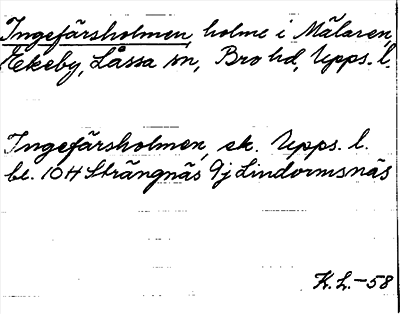 Ingefärsholmen, holme i Mälaren,
Ekeby, Låssa sn, Bro hd, Upps. l.
Ingefärsholmen, ek. Upps. l.
bl. 10H Strängnäs 9j Lindormsnäs
K.L.-58